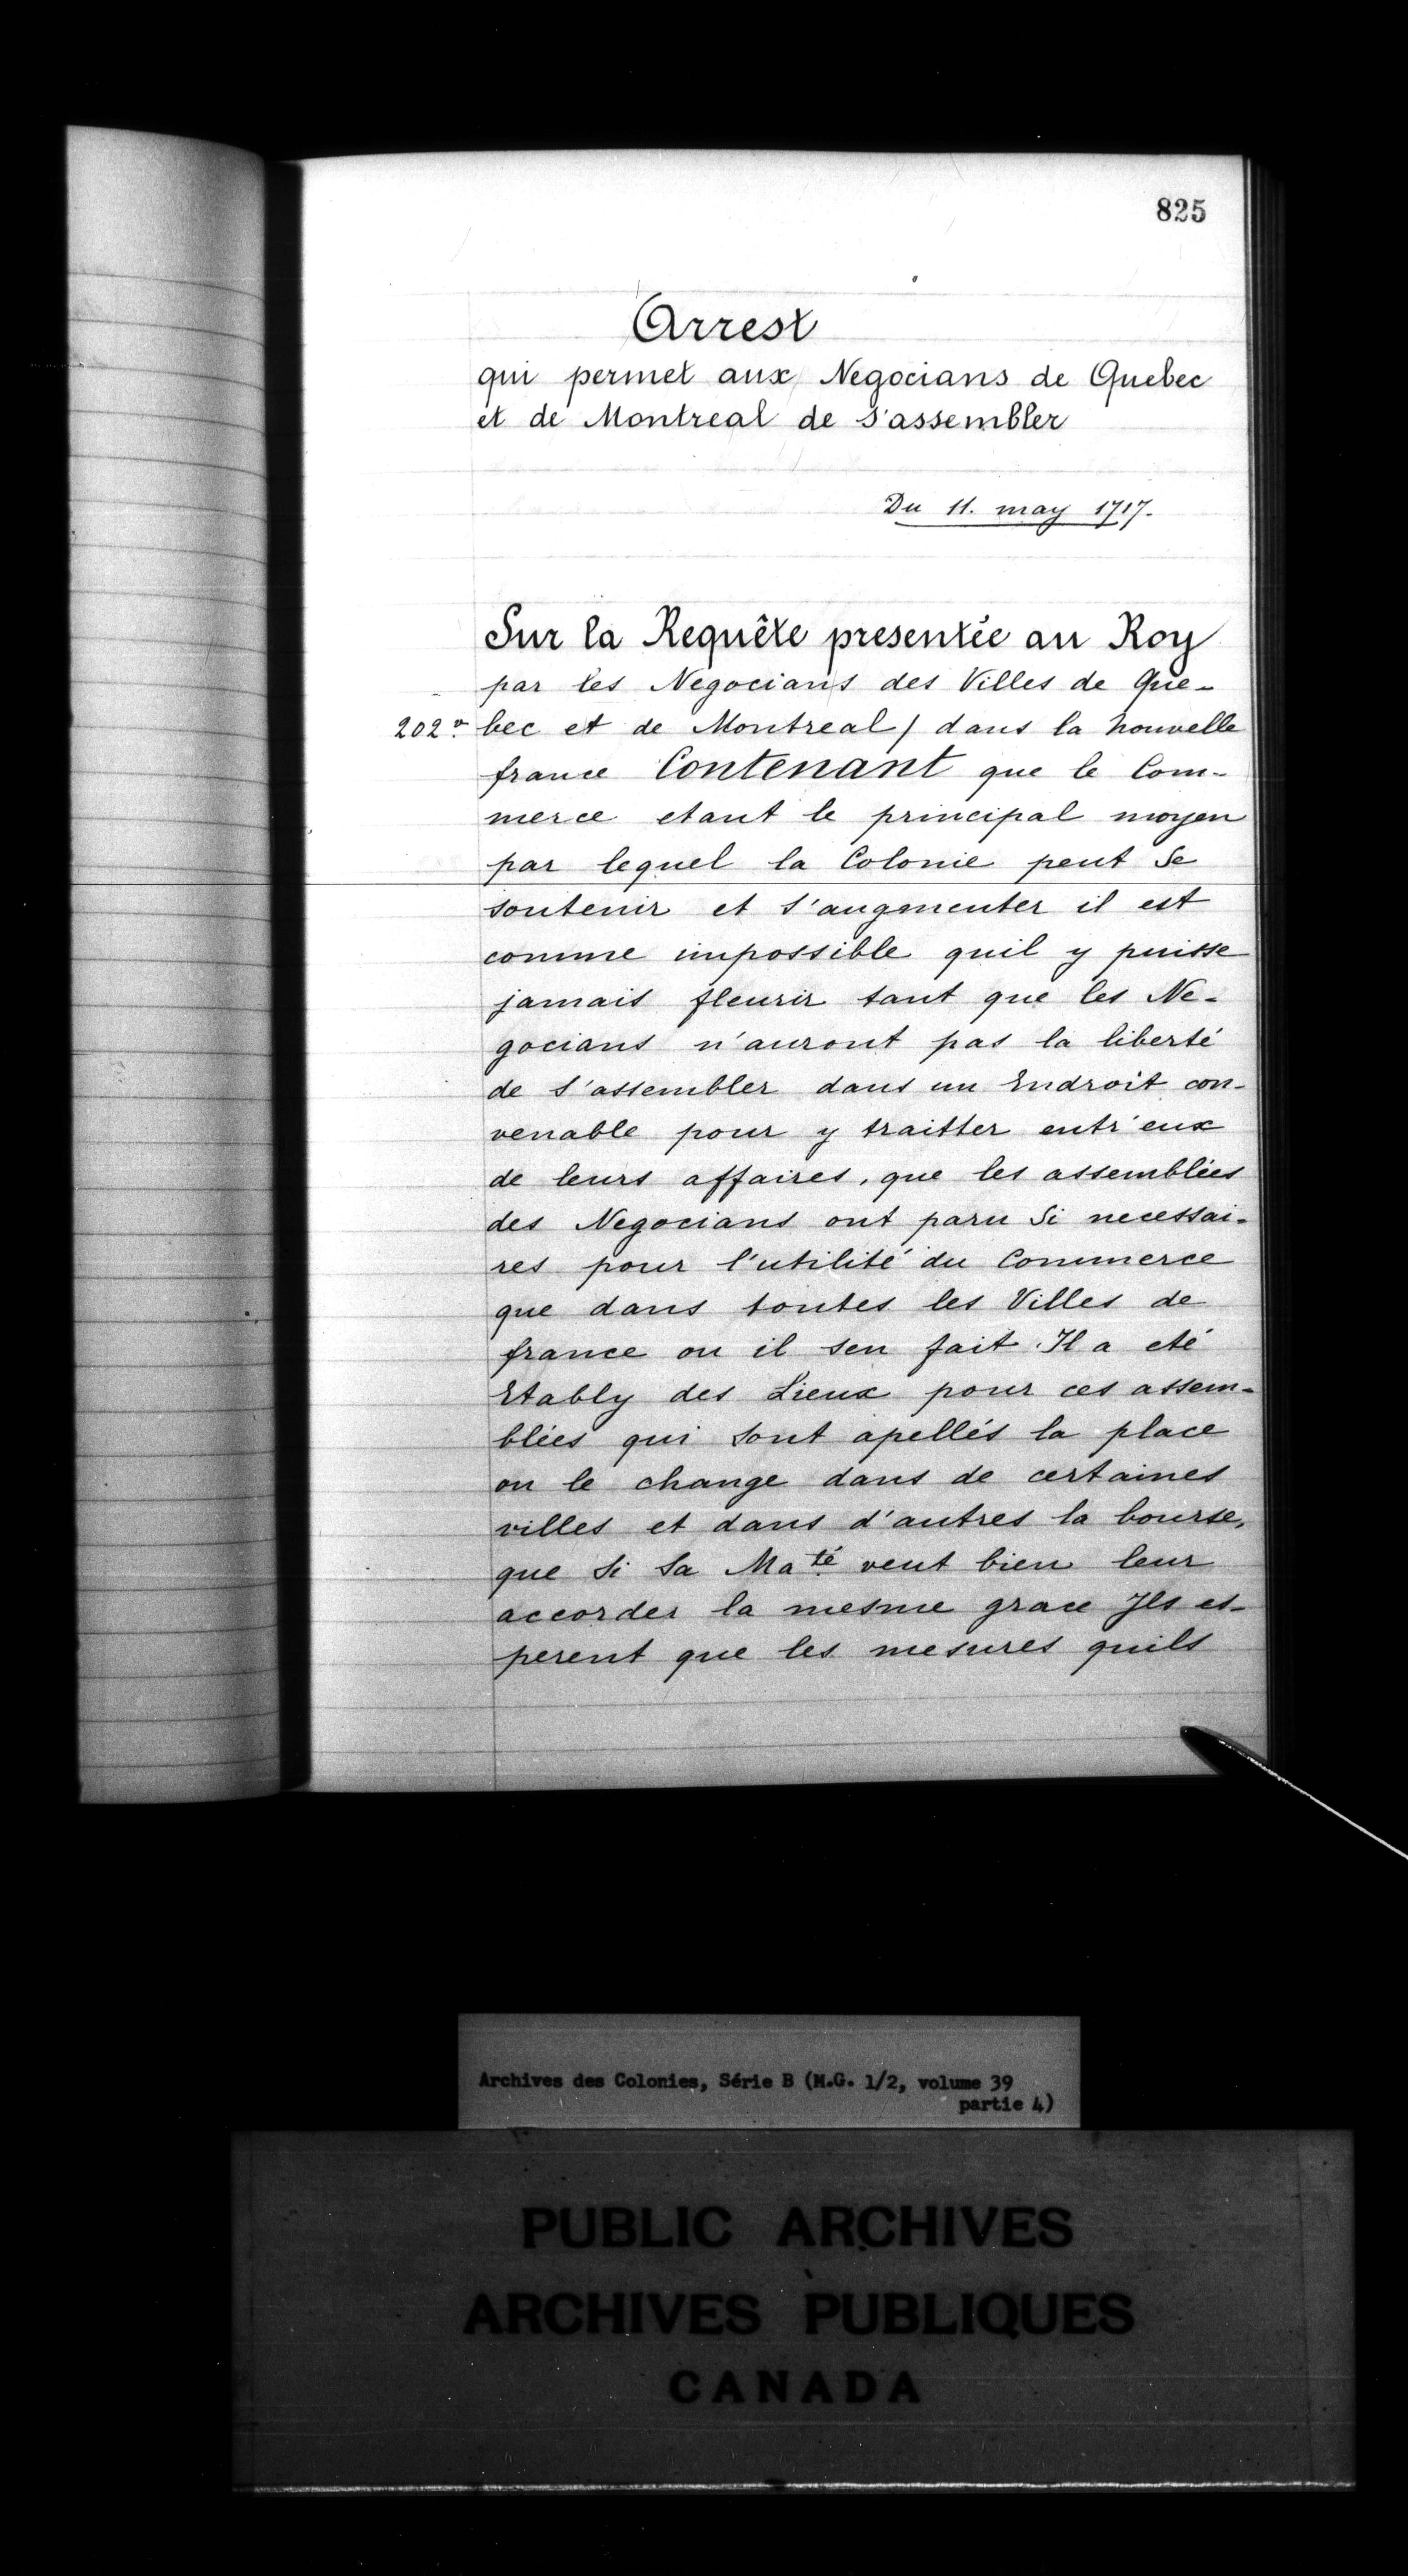 825
Arrest
qui permet aux Negocians de Quebec
et de Montreal de s'assembler
Du 11. may 1717.
Sur la Requête presentée au Roy
par les Negocians des Villes de Que-
202 vo. bec et de Montreal / dans la nouvelle
france Contenant que le Com-
merce etant le principal moyen
par lequel la Colonie peut se
soutenir et s'augmenter il est
comme impossible quil y puisse
jamais fleurir tant que les Ne-
gocians n'auront pas la liberté
de s'assembler dans un Endroit con-
venable pour y traitter entr'eux
de leurs affaires, que les assemblées
des Negocians ont paru si necessai-
res pour l'utilité du Commerce
que dans toutes les Villes de
france ou il sen fait Il a eté
Etably des Lieux pour ces assem-
blées qui sont apellés la place
ou le change dans de certaines
villes et dans d'autres la bourse,
que si sa Maté veut bien leur
accorder la mesme grace Ils es-
perent que les mesures quils
Archives des Colonies, Série B (M.G. 1/2, volume 39
partie 4)
PUBLIC ARCHIVES
ARCHIVES PUBLIQUES
CANADA